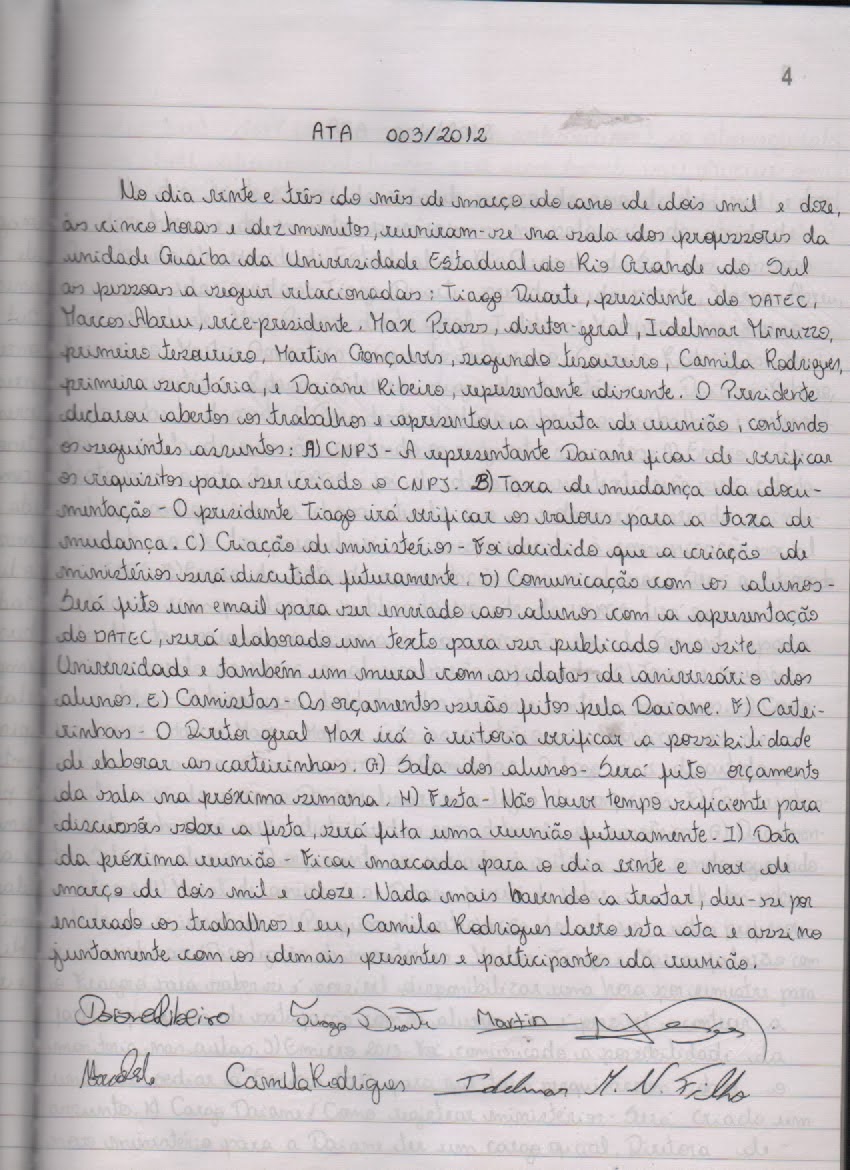 4
ATA 003/2012
No dia vinte e três do mês de março do ano de dois mil e doze,
às cinco horas e dez minutos, reuniram-se na sala dos professores da
unidade Guaíba da Universidade Estadual do Rio Grande do Sul
as pessoas a seguir relacionadas: Tiago Duarte, presidente do DATEC,
Marcos Abreu, vice-presidente, Max Prass, diretor-geral, Idelmar Mimuzzo,
primeiro tesoureiro, Martin Gonçalves, segundo tesoureiro, Camila Rodrigues,
primeira secretária, e Daiane Ribeiro, representante discente. O Presidente
declarou abertos os trabalhos e apresentou a pauta de reunião, contendo
os seguintes assuntos: A) CNPJ - A representante Daiane ficou de verificar
os requisitos para ser criado o CNPJ. B) Taxa de mudança da docu-
mentação - O presidente Tiago irá verificar os valores para a taxa de
mudança. C) Criação de ministérios - Foi decidido que a criação de
ministérios será discutida futuramente. D) Comunicação com os alunos -
Será feito um email para ser enviado aos alunos com a apresentação
do DATEC, será elaborado um texto para ser publicado no site da
Universidade e também um mural com as datas de aniversário dos
alunos. E) Camisetas - Os orçamentos serão feitos pela Daiane. F) Cartei-
rinhas - O Diretor geral Max irá à reitoria verificar a possibilidade
de elaborar as carteirinhas. G) Sala dos alunos - Será feito orçamento
da sala na próxima semana. H) Festa - Não houve tempo suficiente para
discussões sobre a festa, será feita uma reunião futuramente. I) Data
da próxima reunião - Ficou marcada para o dia vinte e nove de
março de dois mil e doze. Nada mais havendo a tratar, deu-se por
encerrado os trabalhos e eu, Camila Rodrigues lavro esta ata e assino
juntamente com os demais presentes e participantes da reunião.
Daiane Ribeiro Tiago Duarte Martin
Camila Rodrigues Idelmar M. N. Filho